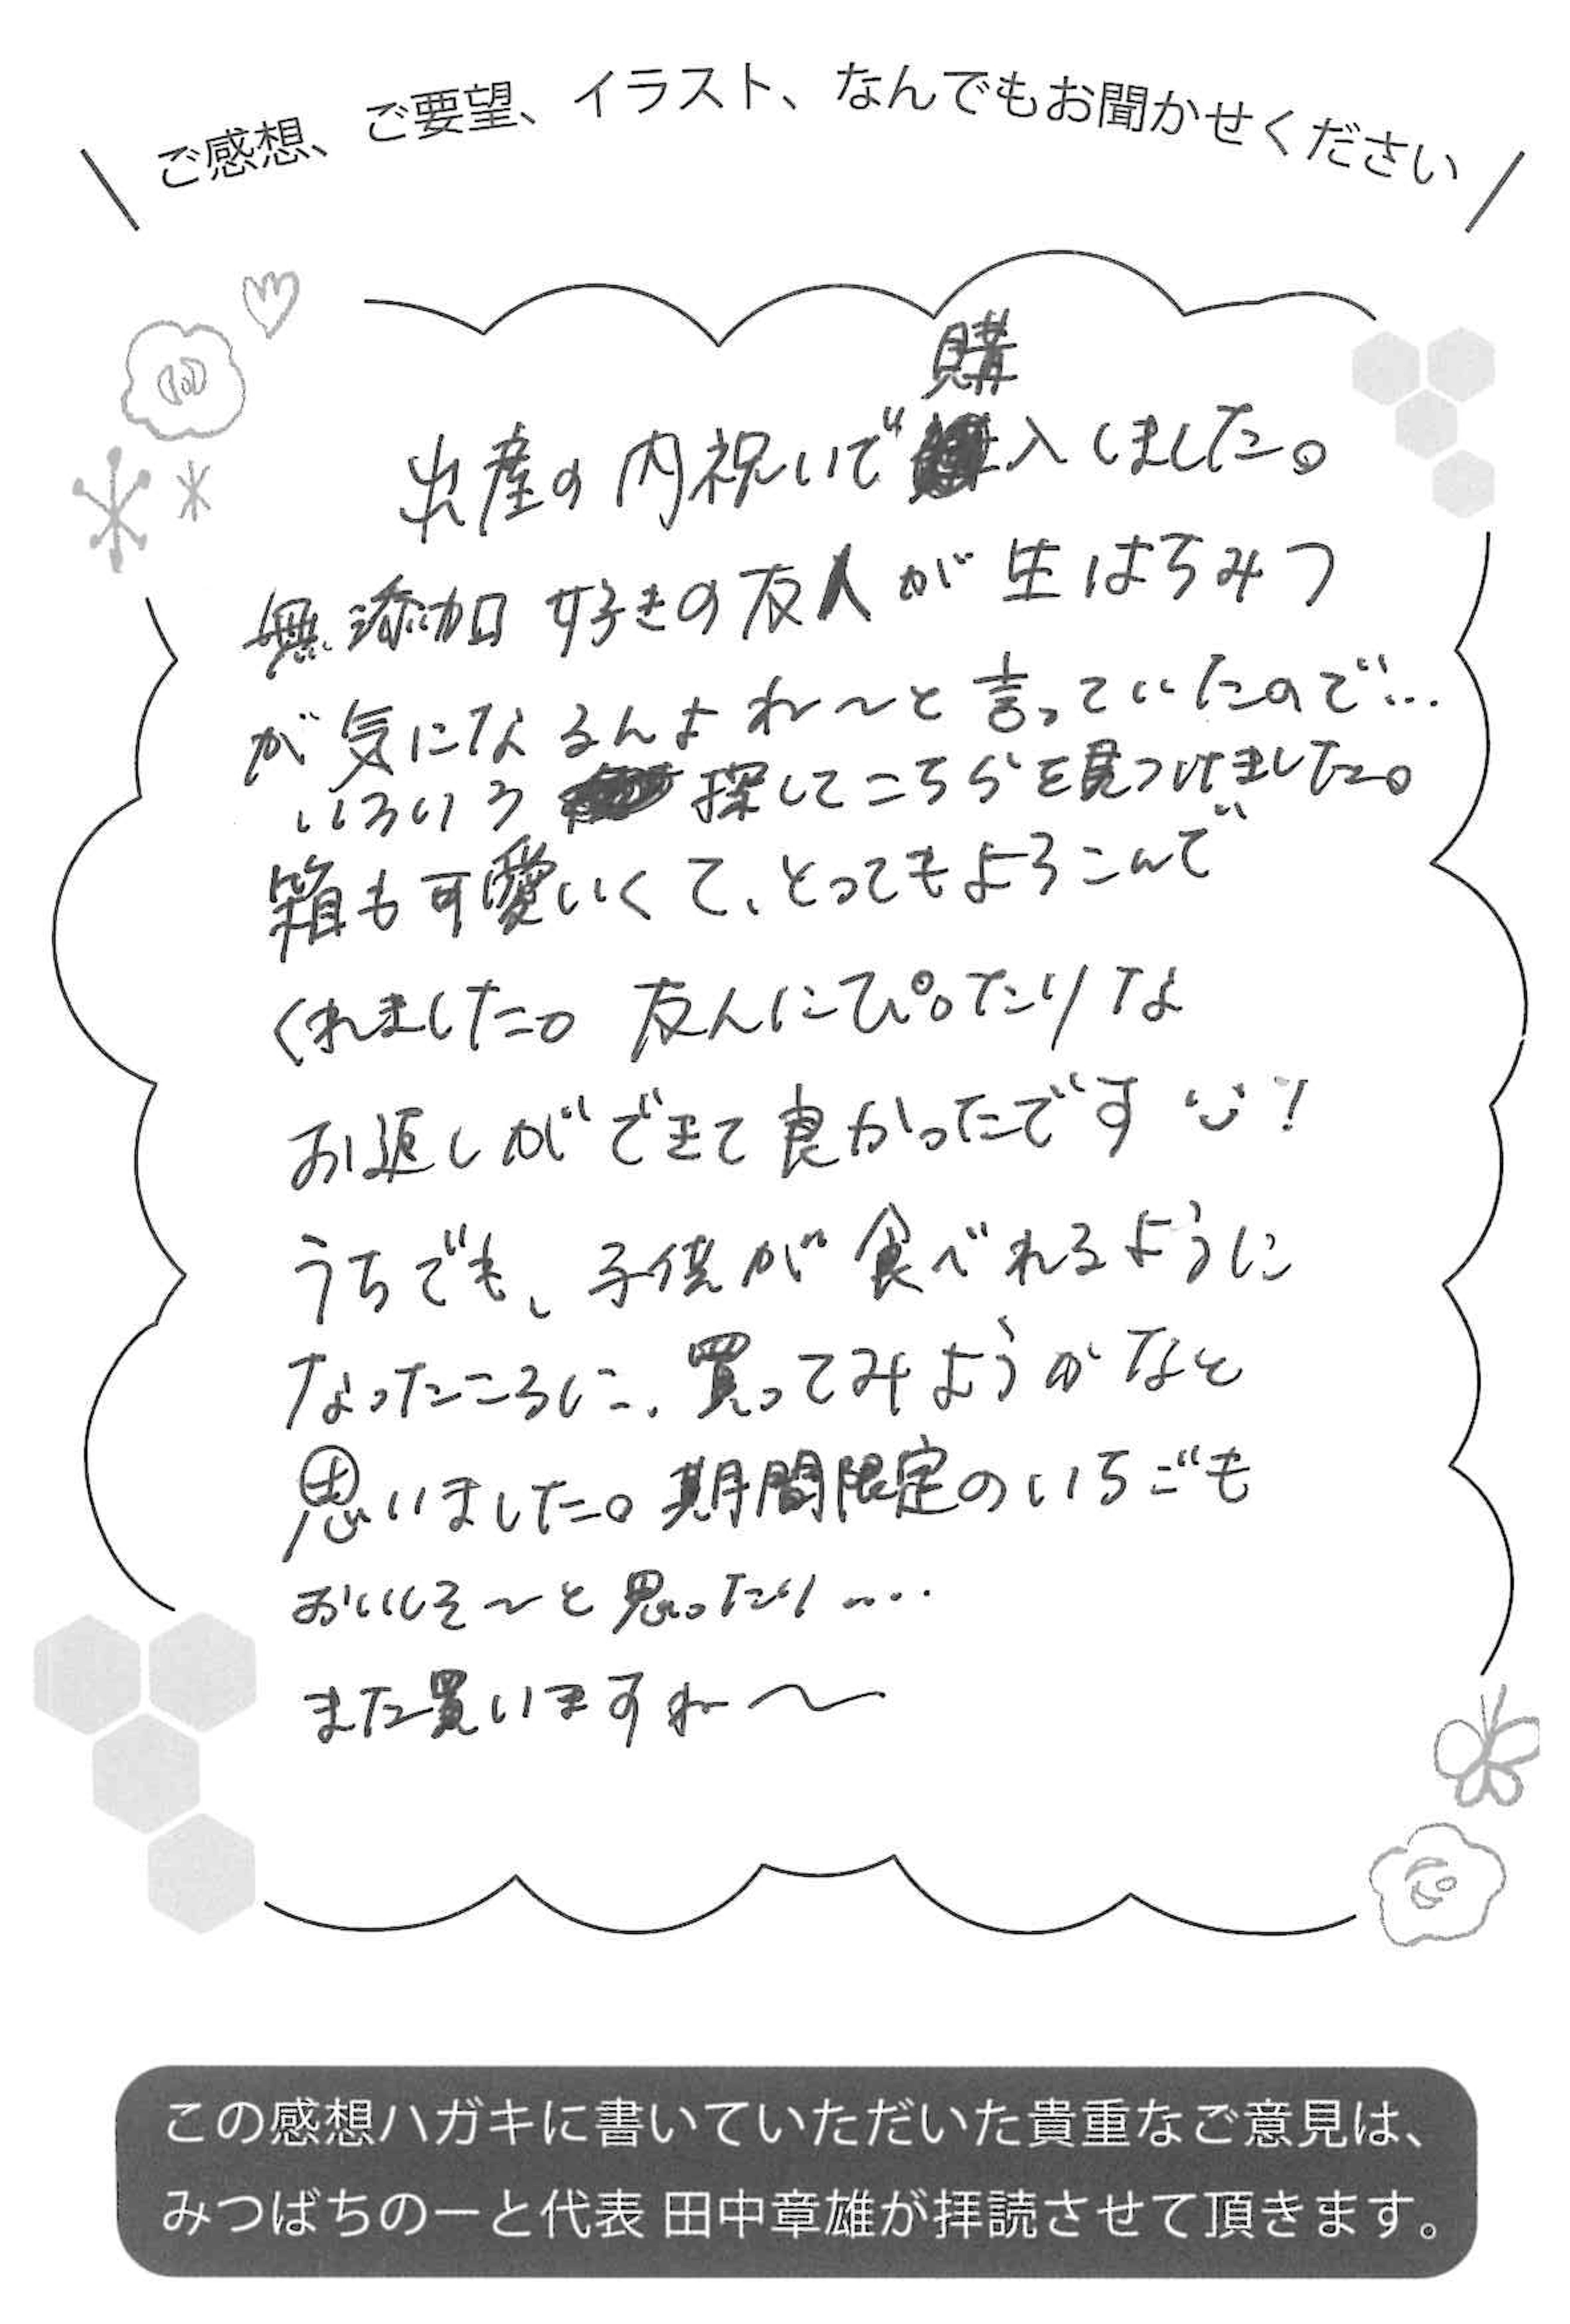 ご感想、ご要望、イラスト、なんでもお聞かせください
出産の内祝いで購入しました。
無添加好きの友人が生はちみつ
が気になるんよね〜と言っていたので…
いろいろ探してこちらを見つけました。
箱も可愛いくて、とってもよろこんで
くれました。友人にぴったりな
お返しができて良かったです!
うちでも、子供が食べれるように
なったころに、買ってみようかなと
思いました。期間限定のいちごも
おいしそ〜と思ったり....
また買いますね〜
この感想ハガキに書いていただいた貴重なご意見は、
みつばちのーと代表 田中章雄が拝読させて頂きます。